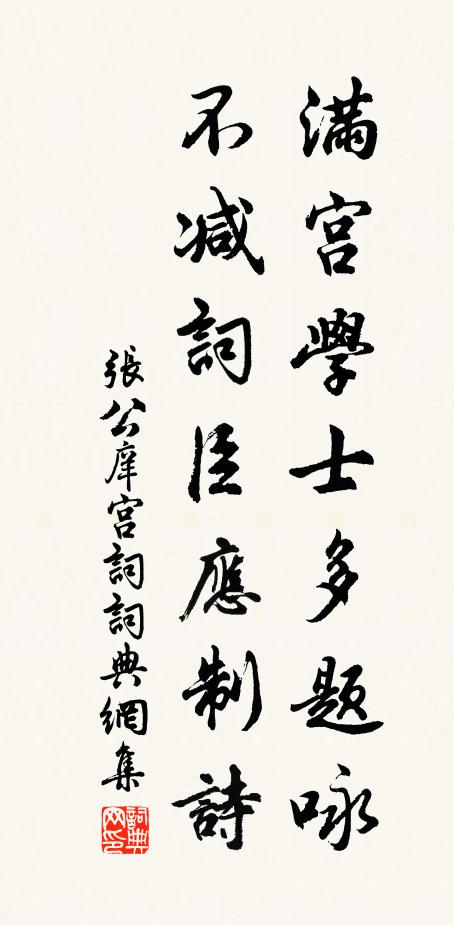 滿宮學士多题咏
不减詞臣應制詩
張公庠宮詞詞典網集
詞典网印